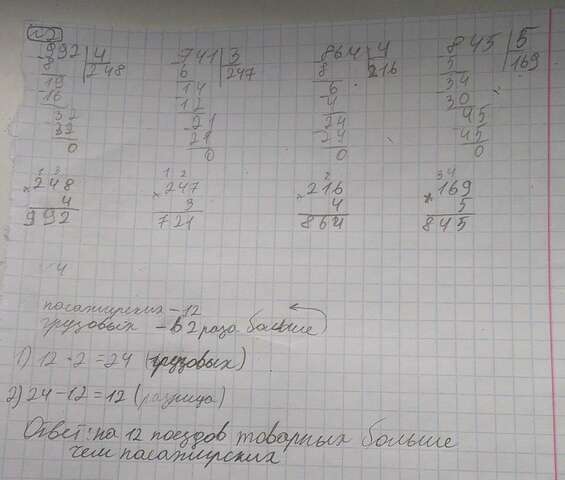 992 | 4   741 | 3   864 | 4   845 | 5
8 | 248   6 | 247   8 | 216   5 | 169
19   14   6   34
16   12   4   30
32   21   24   45
32   21   24   45
0   0   0   0
1 3   1 2   2   3 4
× 248   × 247   × 216   × 169
4   3   4   5
992   721   864   845
4
пасажирских – 12
грузовых – в 2 раза больше
1) 12 · 2 = 24 (грузовых)
2) 24 – 12 = 12 (разница)
Ответ: на 12 поездов товарных больше
чем пасажирских